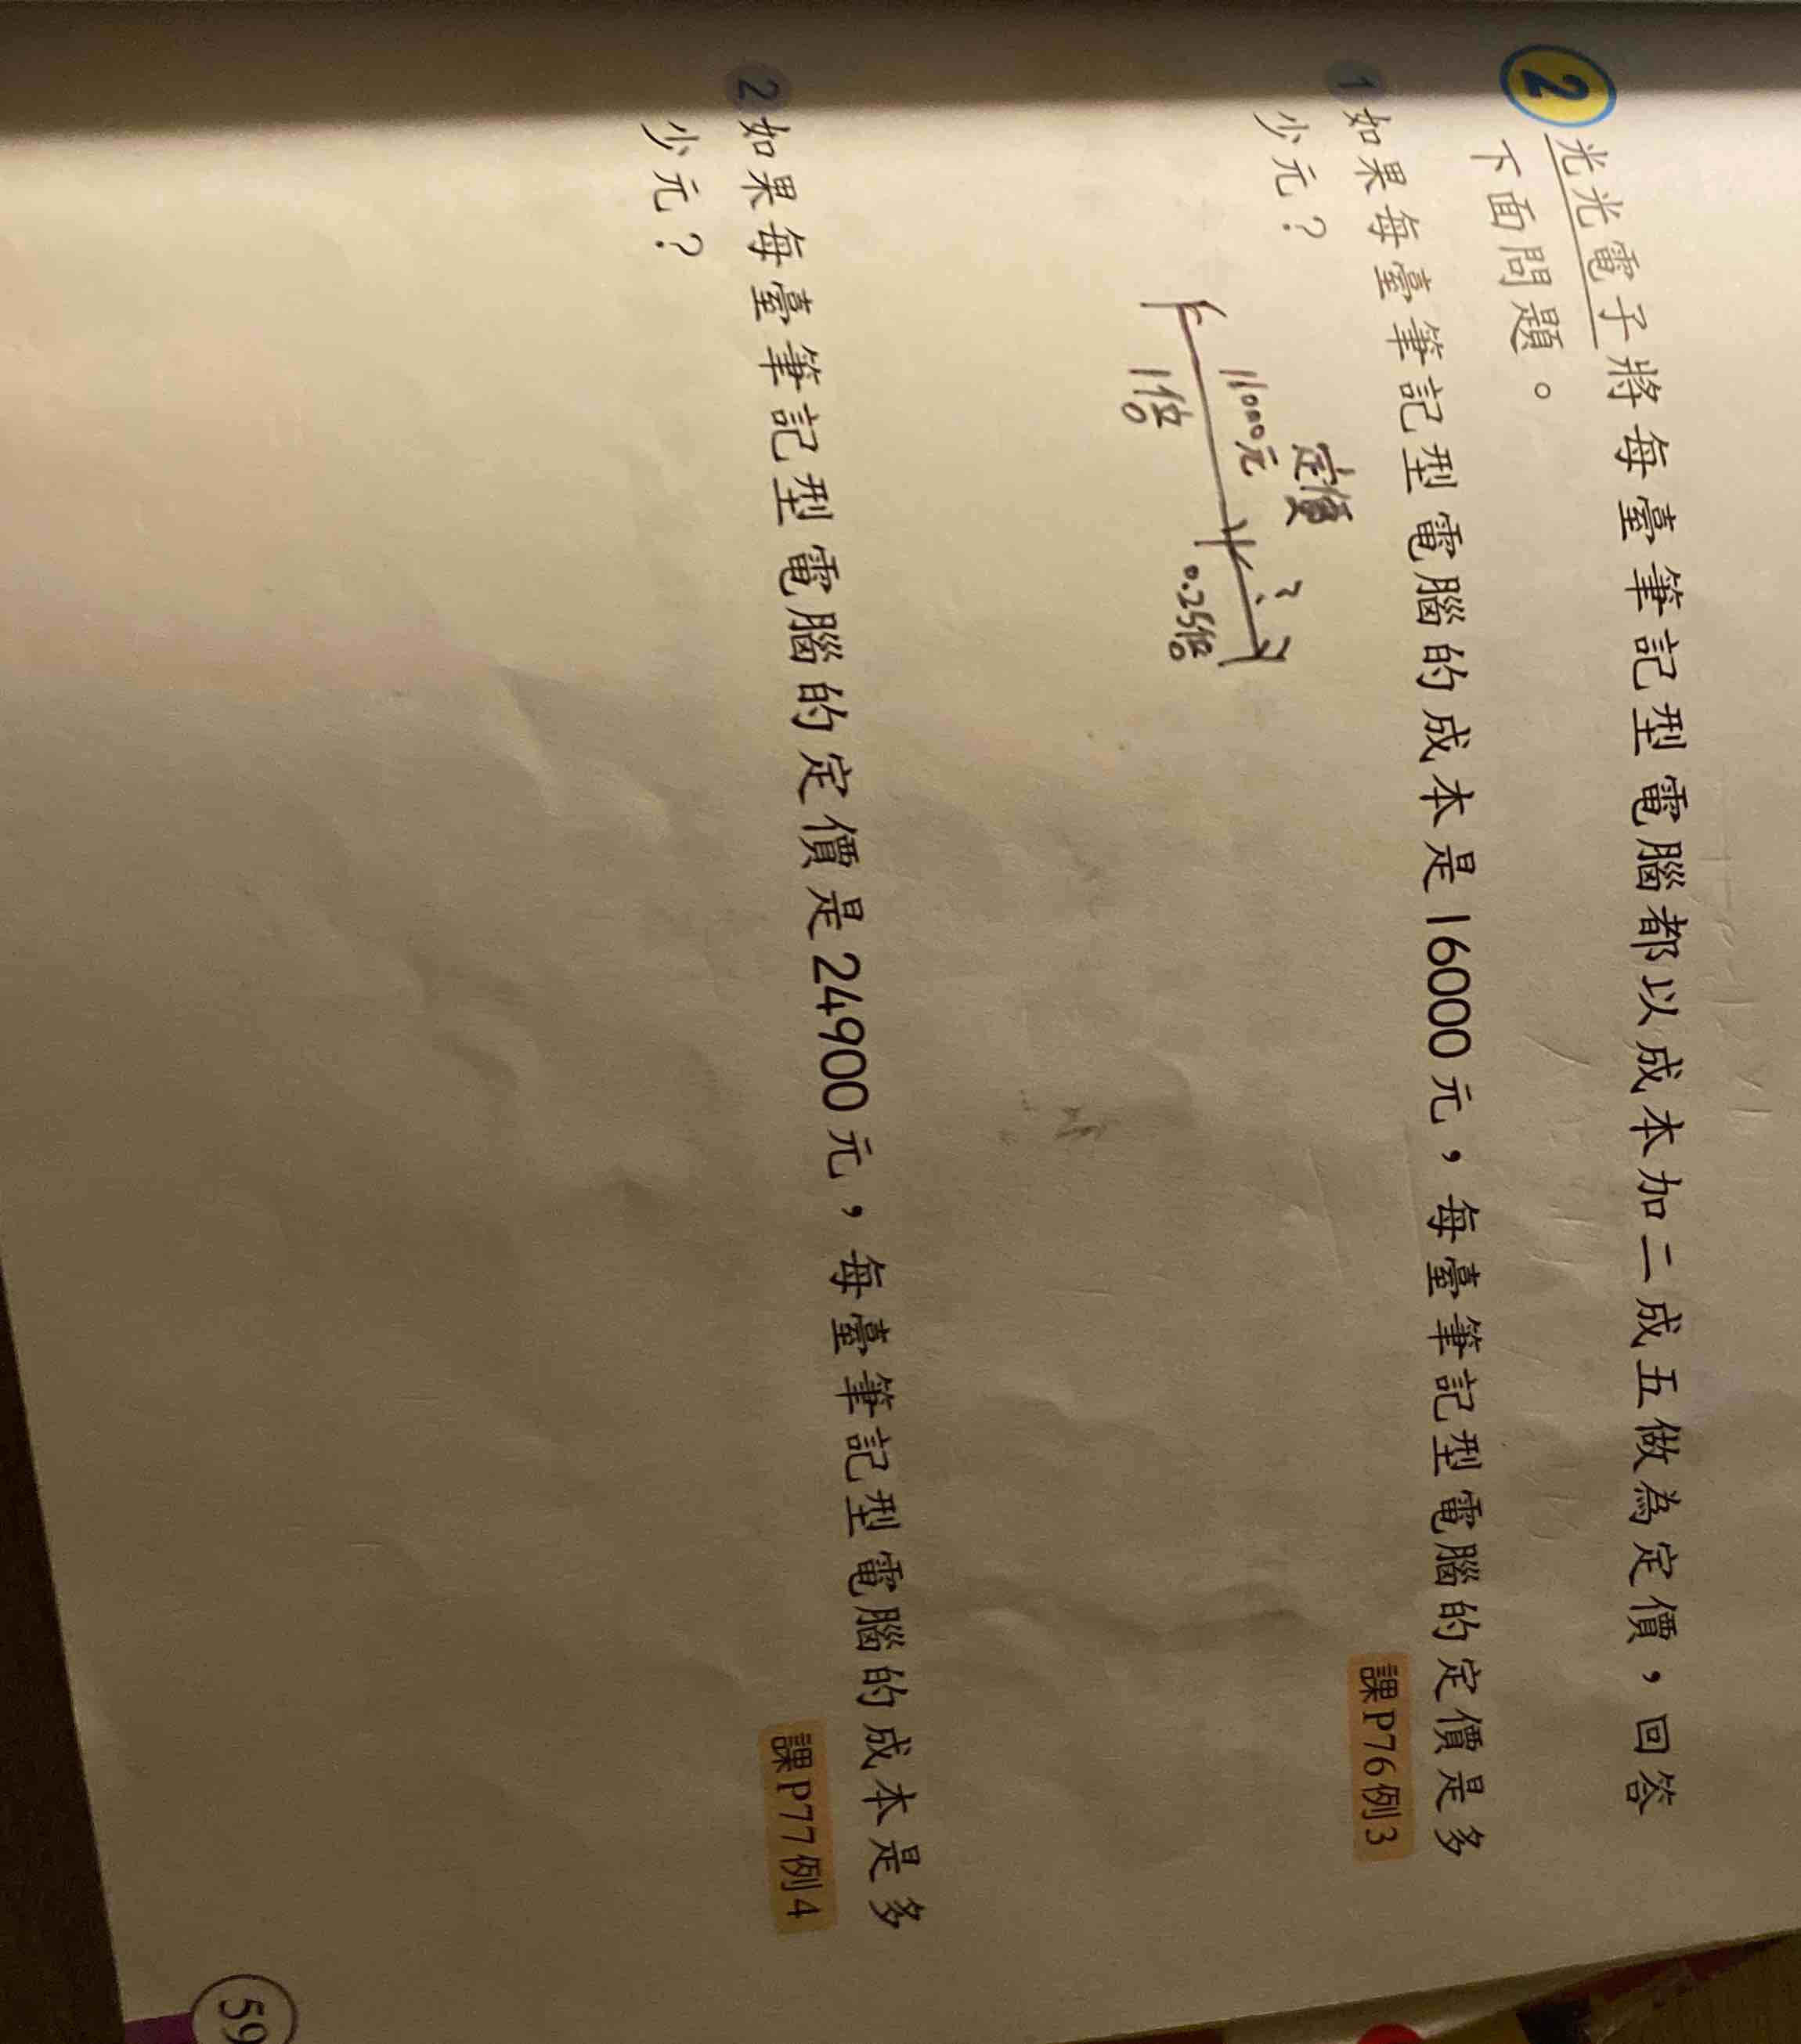 2 光光電子將每臺筆記型電腦都以成本加二成五做為定價，回答
下面問題。
1 如果每臺筆記型電腦的成本是16000元，每臺筆記型電腦的定價是多
少元？
課P76例3
定價
?
1倍
0.25倍
2 如果每臺筆記型電腦的定價是24900元，每臺筆記型電腦的成本是多
少元？
課P77例4
59